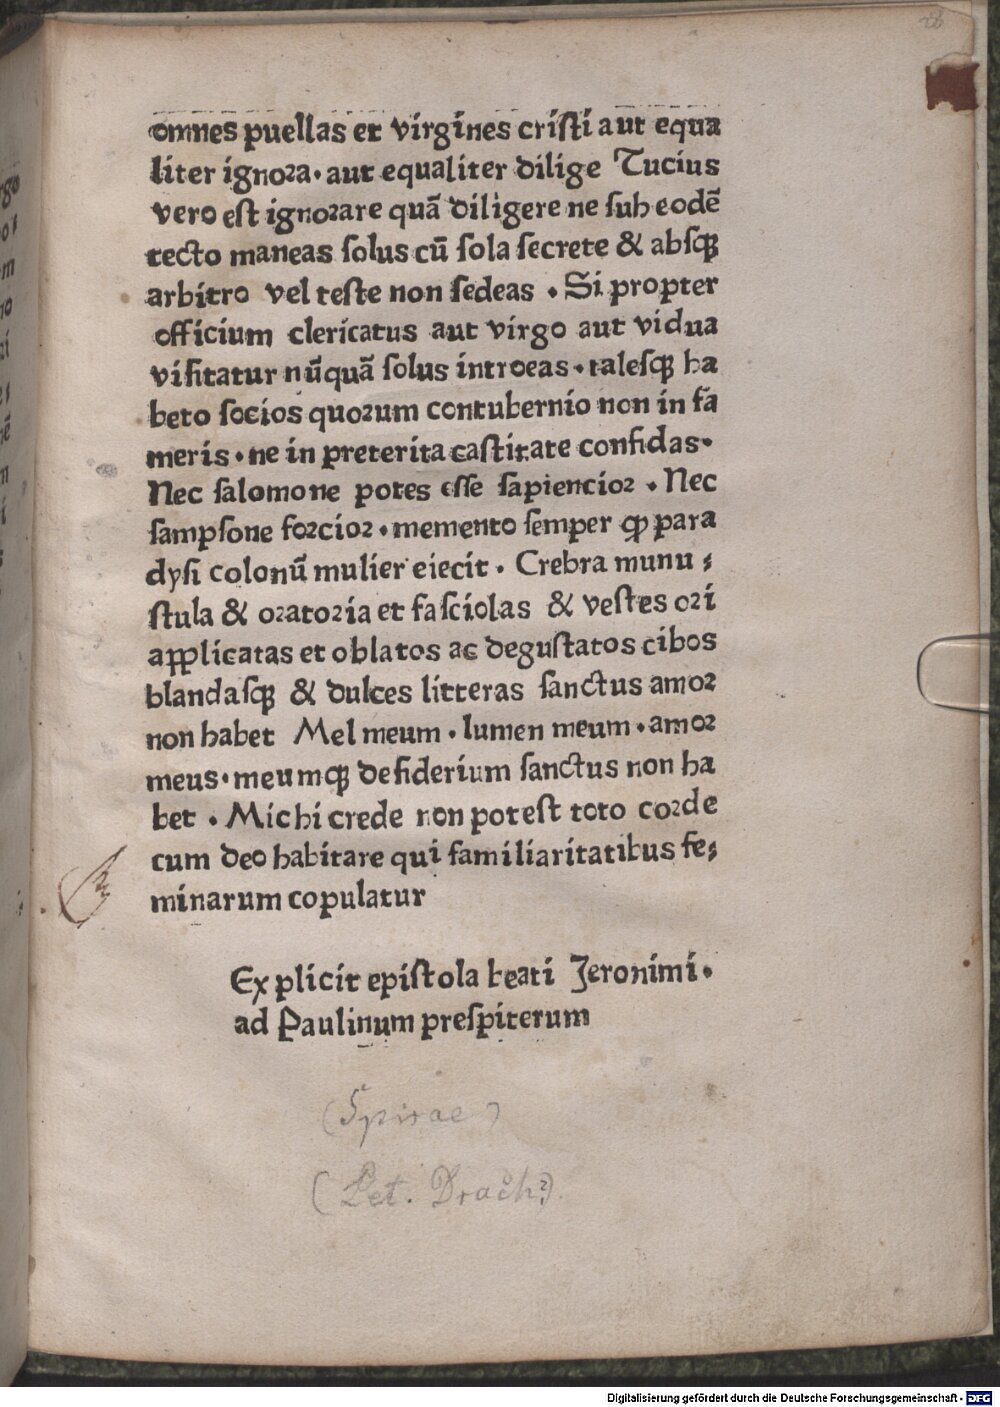 28
omnes puellas et virgines cristi aut equa
liter ignora. aut equaliter dilige Tucius
vero est ignorare quã diligere ne sub eodẽ
tecto maneas solus cũ sola secrete & absqꝫ
arbitro vel teste non sedeas . Si propter
officium clericatus aut virgo aut vidua
visitatur nũquã solus introeas . talesqꝫ ha
beto socios quorum contubernio non in fa
meris . ne in preterita castitate confidas.
Nec salomone potes esse sapiencior . Nec
sampsone forcior . memento semper ꝙ para
dysi colonũ mulier eiecit . Crebra munu ⸗
stula & oratoria et fasciolas & vestes ori
applicatas et oblatos ac degustatos cibos
blandasqꝫ & dulces litteras sanctus amor
non habet Mel meum . lumen meum . amor
meus . meumqꝫ desiderium sanctus non ha
bet . Michi crede non potest toto corde
cum deo habitare qui familiaritatibus fe⸗
minarum copulatur
Explicit epistola beati Jeronimi.
ad Paulinum prespiterum
(Spirae)
(Pet. Drach?).
Digitalisierung gefördert durch die Deutsche Forschungsgemeinschaft - DFG